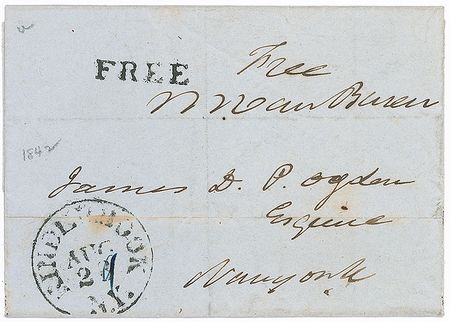 FREE
Free
M. Van Buren
1842
James D. P. Ogden
Esquire
Newyork
KINDERHOOK
N.Y.
AUG
29